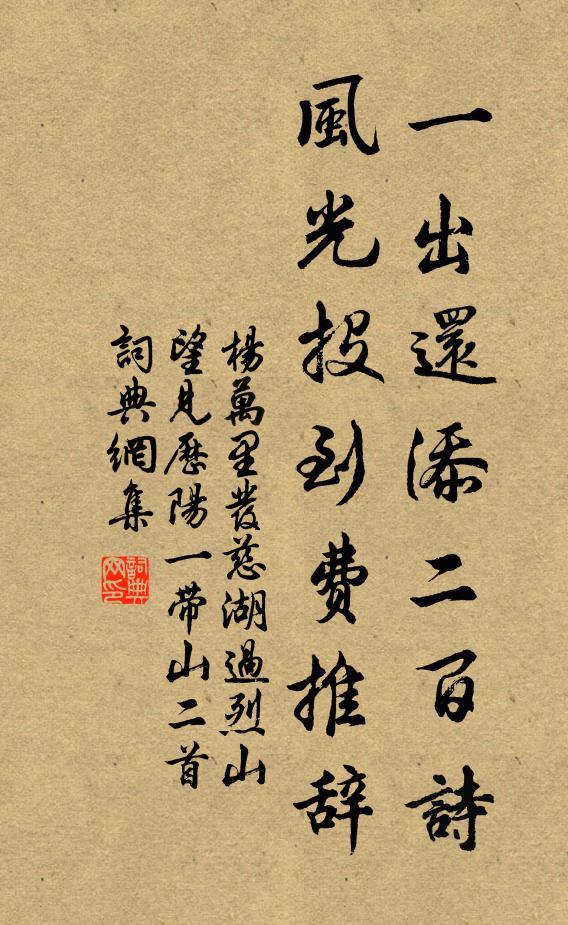 一出還添二百詩
風光投到費推辞
楊萬里發慈湖過烈山
望見歷陽一帶山二首
詞典網集
詞典网印